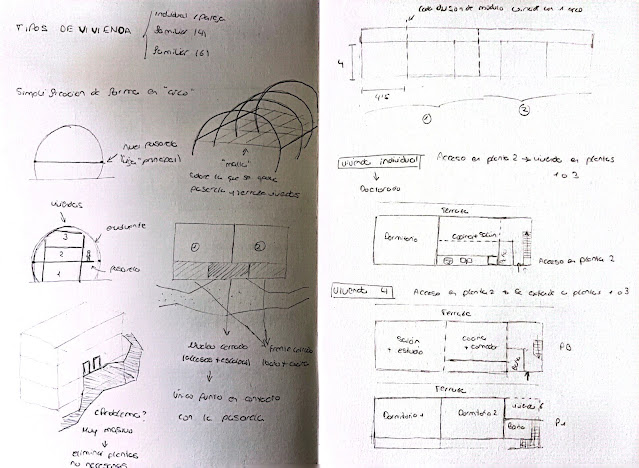 TIPOS DE VIVIENDA
individual / pareja
familiar (4)
familiar (6)
Simplificación de forma en "arco"
Nivel pasarela
("eje" principal)
"malla"
sobre la que se apoya
pasarela + terraza viviendas
viviendas
envolvente
3
2
1
pasarela
① ②
Núcleo cerrado
(accesos + escaleras)
Frente cerrado
Único punto en contacto
con la pasarela
¿Problema?
Muy masivo
eliminar plantas
no necesarias
cada división de módulo coincide con 1 arco
4
4'5
① ②
vivienda individual
Acceso en planta 2 → vivienda en plantas
1 o 3
Doctorado
Terraza
Dormitorio
Cocina + Salón
Acceso en planta 2
Vivienda 4
Acceso en planta 2 → Se extiende a plantas 1 o 3
Terraza
Salón
+
estudio
cocina
+ comedor
Baño
PB
Terraza
Dormitorio 1
Dormitorio 2
vivienda 6
Baño
P1